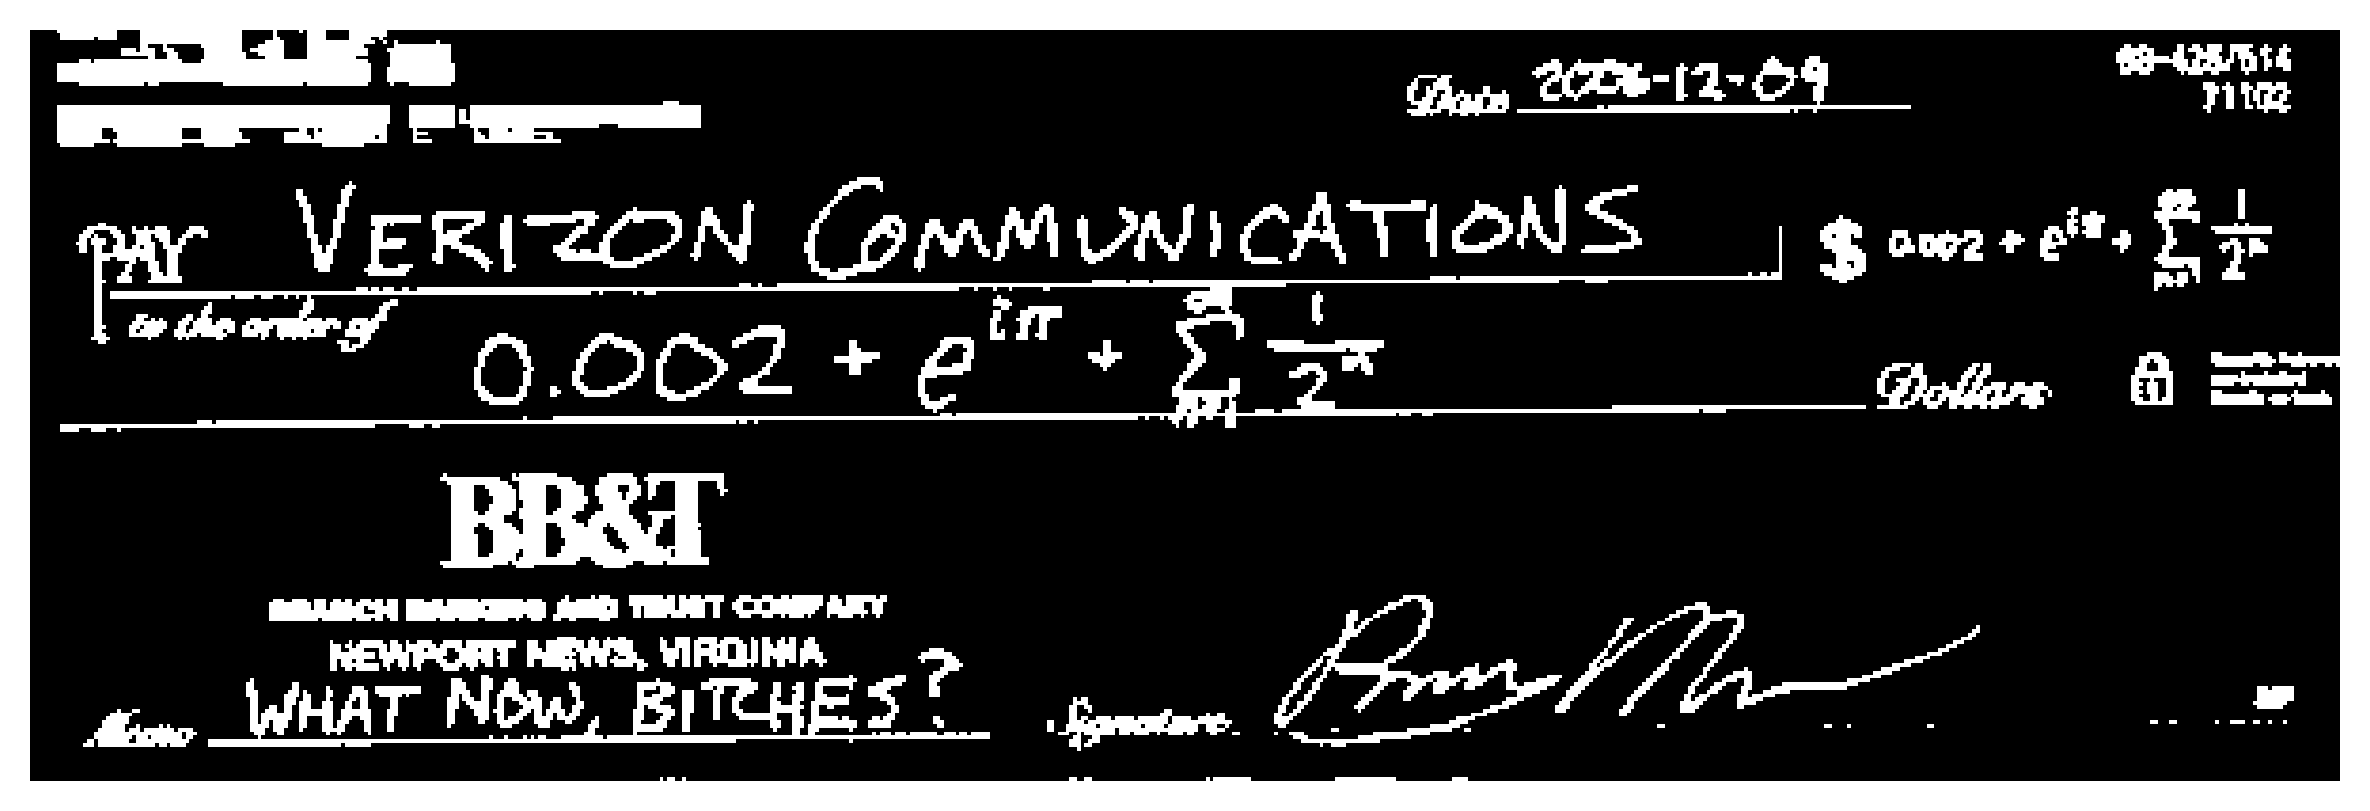 Date 2006-12-09
71102
PAY VERIZON COMMUNICATIONS $ 0.002 + e^{iπ} + ∑_{n=1}^{∞} 1/2^n
to the order of
0.002 + e^{iπ} + ∑_{n=1}^{∞} 1/2^n Dollars
BB&T
BRANCH BANKING AND TRUST COMPANY
NEWPORT NEWS, VIRGINIA
Memo WHAT NOW, BITCHES?
Signature